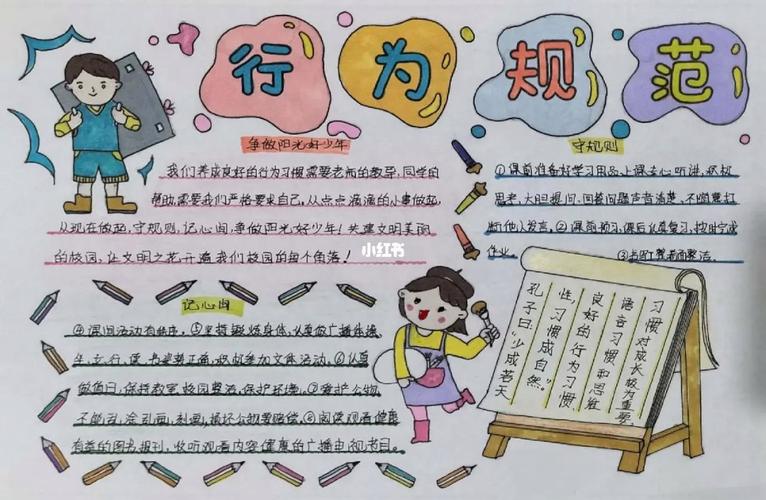 行为规范
争做阳光好少年
我们养成良好的行为习惯需要老师的教导,同学的
帮助,需要我们严格要求自己,从点点滴滴的小事做起,
从现在做起,守规则,记心间,争做阳光好少年!共建文明美丽
的校园,让文明之花开遍我们校园的每个角落!
守规则
①课前准备好学习用品,上课专心听讲,积极
思考,大胆提问,回答问题声音清楚,不随意打
断他人发言。②课前预习,课后认真复习,按时完成
作业。 ③书 整洁。
小红书
记心间
④课间活动有秩序。⑤坚持锻炼身体,认真做广播体操
坐、立、行、读、书写姿势正确,积极参加文体活动。⑥认真
做值日,保持教室、校园整洁,保护环境。⑦爱护公物
不 乱涂乱画,刻画,损坏公物要赔偿。⑧阅读观看健康
有益的图书报刊,收听观看内容健康的广播电视节目。
孔子曰:“少成若天
性,习惯成自然。
良好的行为习惯
语言习惯和思维
习惯对成长极为重要。